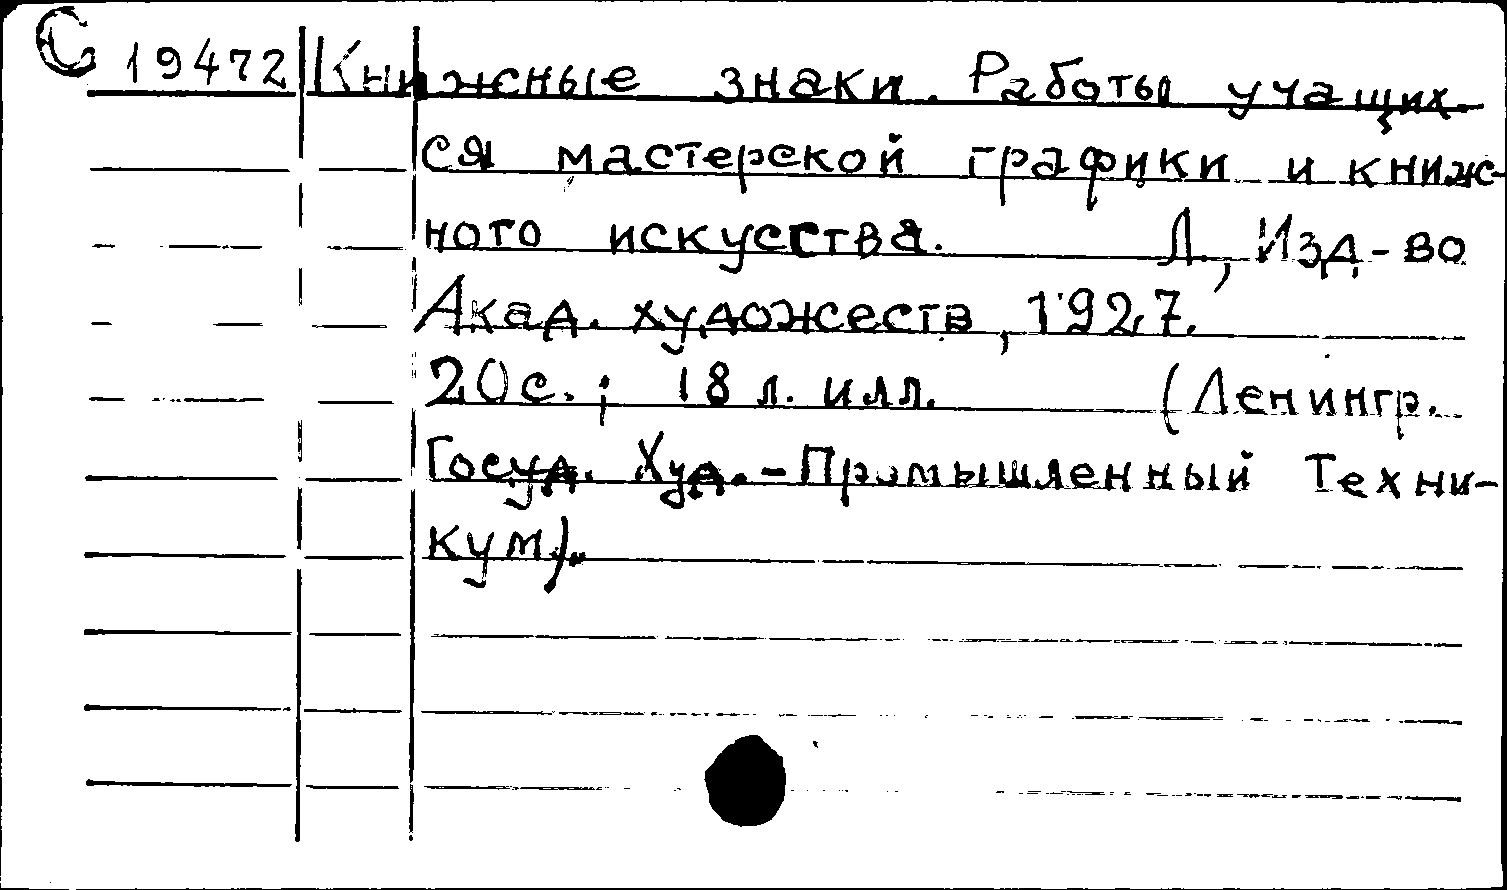 С 19472 Книжные знаки. Работы учащих-
ся мастерской графики и книж-
ного искусства. Л., Изд-во
Акад. художеств, 1927.
20 с.; 18 л. илл. (Ленингр.
Госуд. Худ.-Промышленный Техни-
кум).